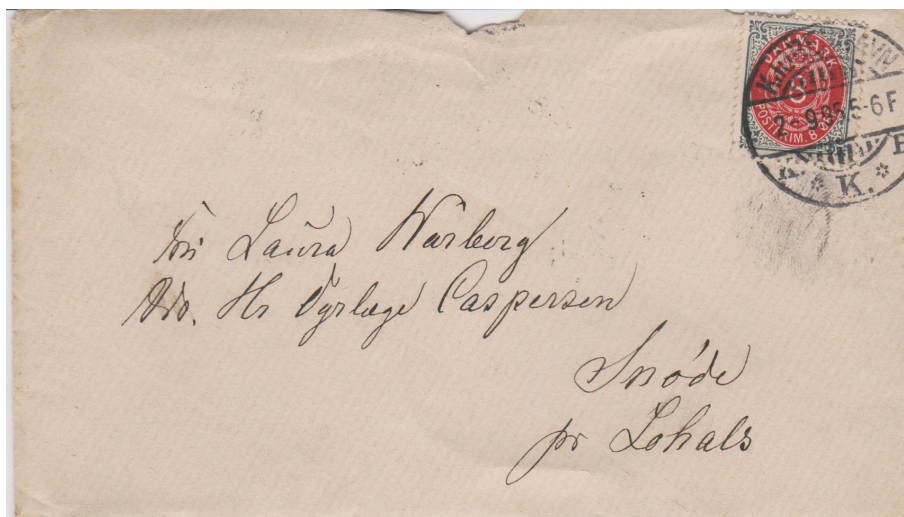 DANMARK
8
POSTFRIM. 8
KJØBENHAVN
2-9.95 5-6F
* K. *
Fru Laura Warberg
Adr. Hr Dyrlæge Caspersen
Snøde
pr Lohals